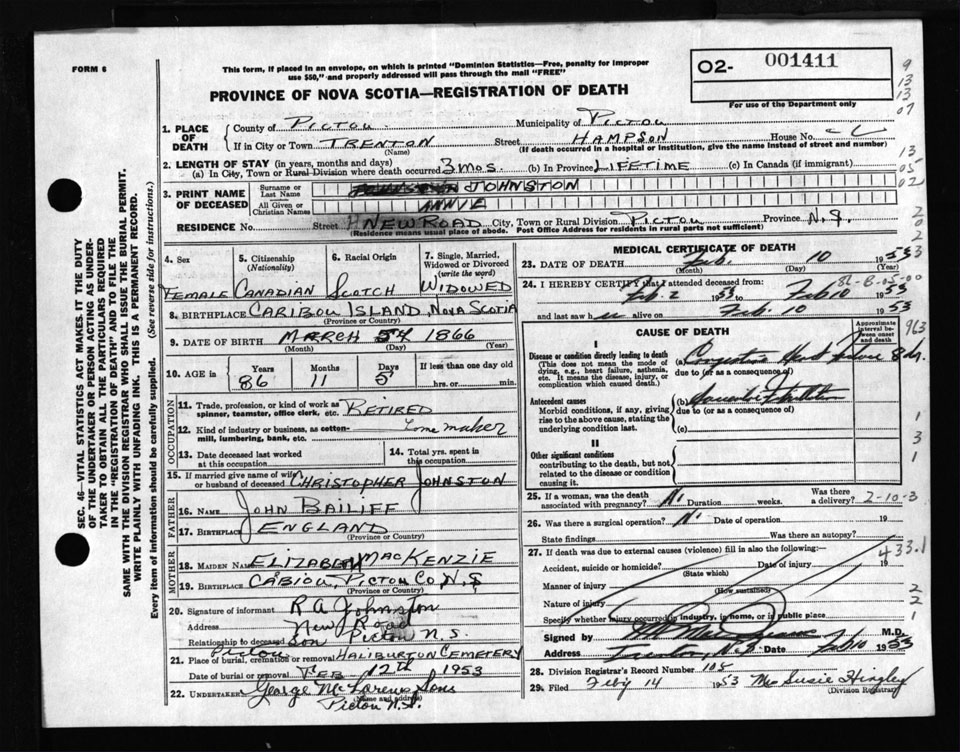 FORM 6
This form, if placed in an envelope, on which is printed "Dominion Statistics—Free, penalty for improper
use $50," and properly addressed will pass through the mail "FREE"
02- 001411
For use of the Department only
PROVINCE OF NOVA SCOTIA—REGISTRATION OF DEATH
9
13
13
07
13
05
02
1. PLACE OF DEATH County of PICTOU Municipality of PICTOU
If in City or Town TRENTON (Name) Street HAMPSON House No.
(If death occurred in a hospital or institution, give the name instead of street and number)
2. LENGTH OF STAY (in years, months and days)
(a) In City, Town or Rural Division where death occurred 3 mos. (b) In Province LIFETIME (c) In Canada (if immigrant)
3. PRINT NAME OF DECEASED Surname or Last Name JOHNSTON
All Given or Christian Names ANNIE
RESIDENCE No. Street NEW ROAD City, Town or Rural Division PICTOU Province N.S.
(Residence means usual place of abode. Post Office Address for residents in rural parts not sufficient)
SEC. 46—VITAL STATISTICS ACT MAKES IT THE DUTY
OF THE UNDERTAKER OR PERSON ACTING AS UNDER-
TAKER TO OBTAIN ALL THE PARTICULARS REQUIRED
IN THE "REGISTRATION OF DEATH" AND TO FILE THE
SAME WITH THE DIVISION REGISTRAR WHO SHALL ISSUE THE BURIAL PERMIT.
WRITE PLAINLY WITH UNFADING INK. THIS IS A PERMANENT RECORD.
Every item of information should be carefully supplied. (See reverse side for instructions.)
4. Sex FEMALE
5. Citizenship (Nationality) CANADIAN
6. Racial Origin SCOTCH
7. Single, Married, Widowed or Divorced (write the word) WIDOWED
8. BIRTHPLACE CARIBOU ISLAND, NOVA SCOTIA
(Province or Country)
9. DATE OF BIRTH MARCH 1866
(Month) (Day) (Year)
10. AGE in Years 86 Months 11 Days 5 If less than one day
hrs. or min.
OCCUPATION
11. Trade, profession, or kind of work as spinner, teamster, office clerk, etc. RETIRED
12. Kind of industry or business, as cotton-mill, lumbering, bank, etc. Home maker
13. Date deceased last worked at this occupation
14. Total yrs. spent in this occupation
15. If married give name of wife or husband of deceased CHRISTOPHER JOHNSTON
FATHER
16. NAME JOHN BAILIFF
17. BIRTHPLACE ENGLAND
(Province or Country)
MOTHER
18. MAIDEN NAME ELIZABETH MACKENZIE
19. BIRTHPLACE CABIOU, PICTOU CO, N.S
(Province or Country)
20. Signature of informant R A Johnston
Address New Road
Relationship to deceased Son Pictou N.S.
21. Place of burial, cremation or removal Pictou HALIBURTON CEMETERY
Date of burial or removal FEB 12th 1953
22. UNDERTAKER George McLarens Sons
(Name and address)
Pictou N.S.
MEDICAL CERTIFICATE OF DEATH
23. DATE OF DEATH Feb. 10 1953
(Month) (Day) (Year)
24. I HEREBY CERTIFY that I attended deceased from:
Feb. 2 1953 to Feb 10 1953
and last saw h er alive on Feb. 10 1953
CAUSE OF DEATH
Approximate interval between onset and death
963
I
Disease or condition directly leading to death
(This does not mean the mode of dying, e.g., heart failure, asthenia, etc. It means the disease, injury, or complication which caused death.)
(a) Congestive Heart Failure 8 da.
due to (or as a consequence of)
Antecedent causes
Morbid conditions, if any, giving rise to the above cause, stating the underlying condition last.
(b)
due to (or as a consequence of)
(c)
II
Other significant conditions
contributing to the death, but not related to the disease or condition causing it.
1
3
1
25. If a woman, was the death associated with pregnancy? No Duration weeks. Was there a delivery? 2-10-3
26. Was there a surgical operation? No Date of operation 19
State findings Was there an autopsy?
27. If death was due to external causes (violence) fill in also the following:— 433.1
Accident, suicide or homicide? Date of injury 19
(State which)
Manner of injury
(How sustained)
Nature of injury
Specify whether injury occurred in industry, in home, or in public place
2
2
1
Signed by M.D.
Address Trenton, N.S. Date Feb 10 1953
28. Division Registrar's Record Number 108
29. Filed Feby 14 1953 Mrs Susie Hingley
(Division Registrar)